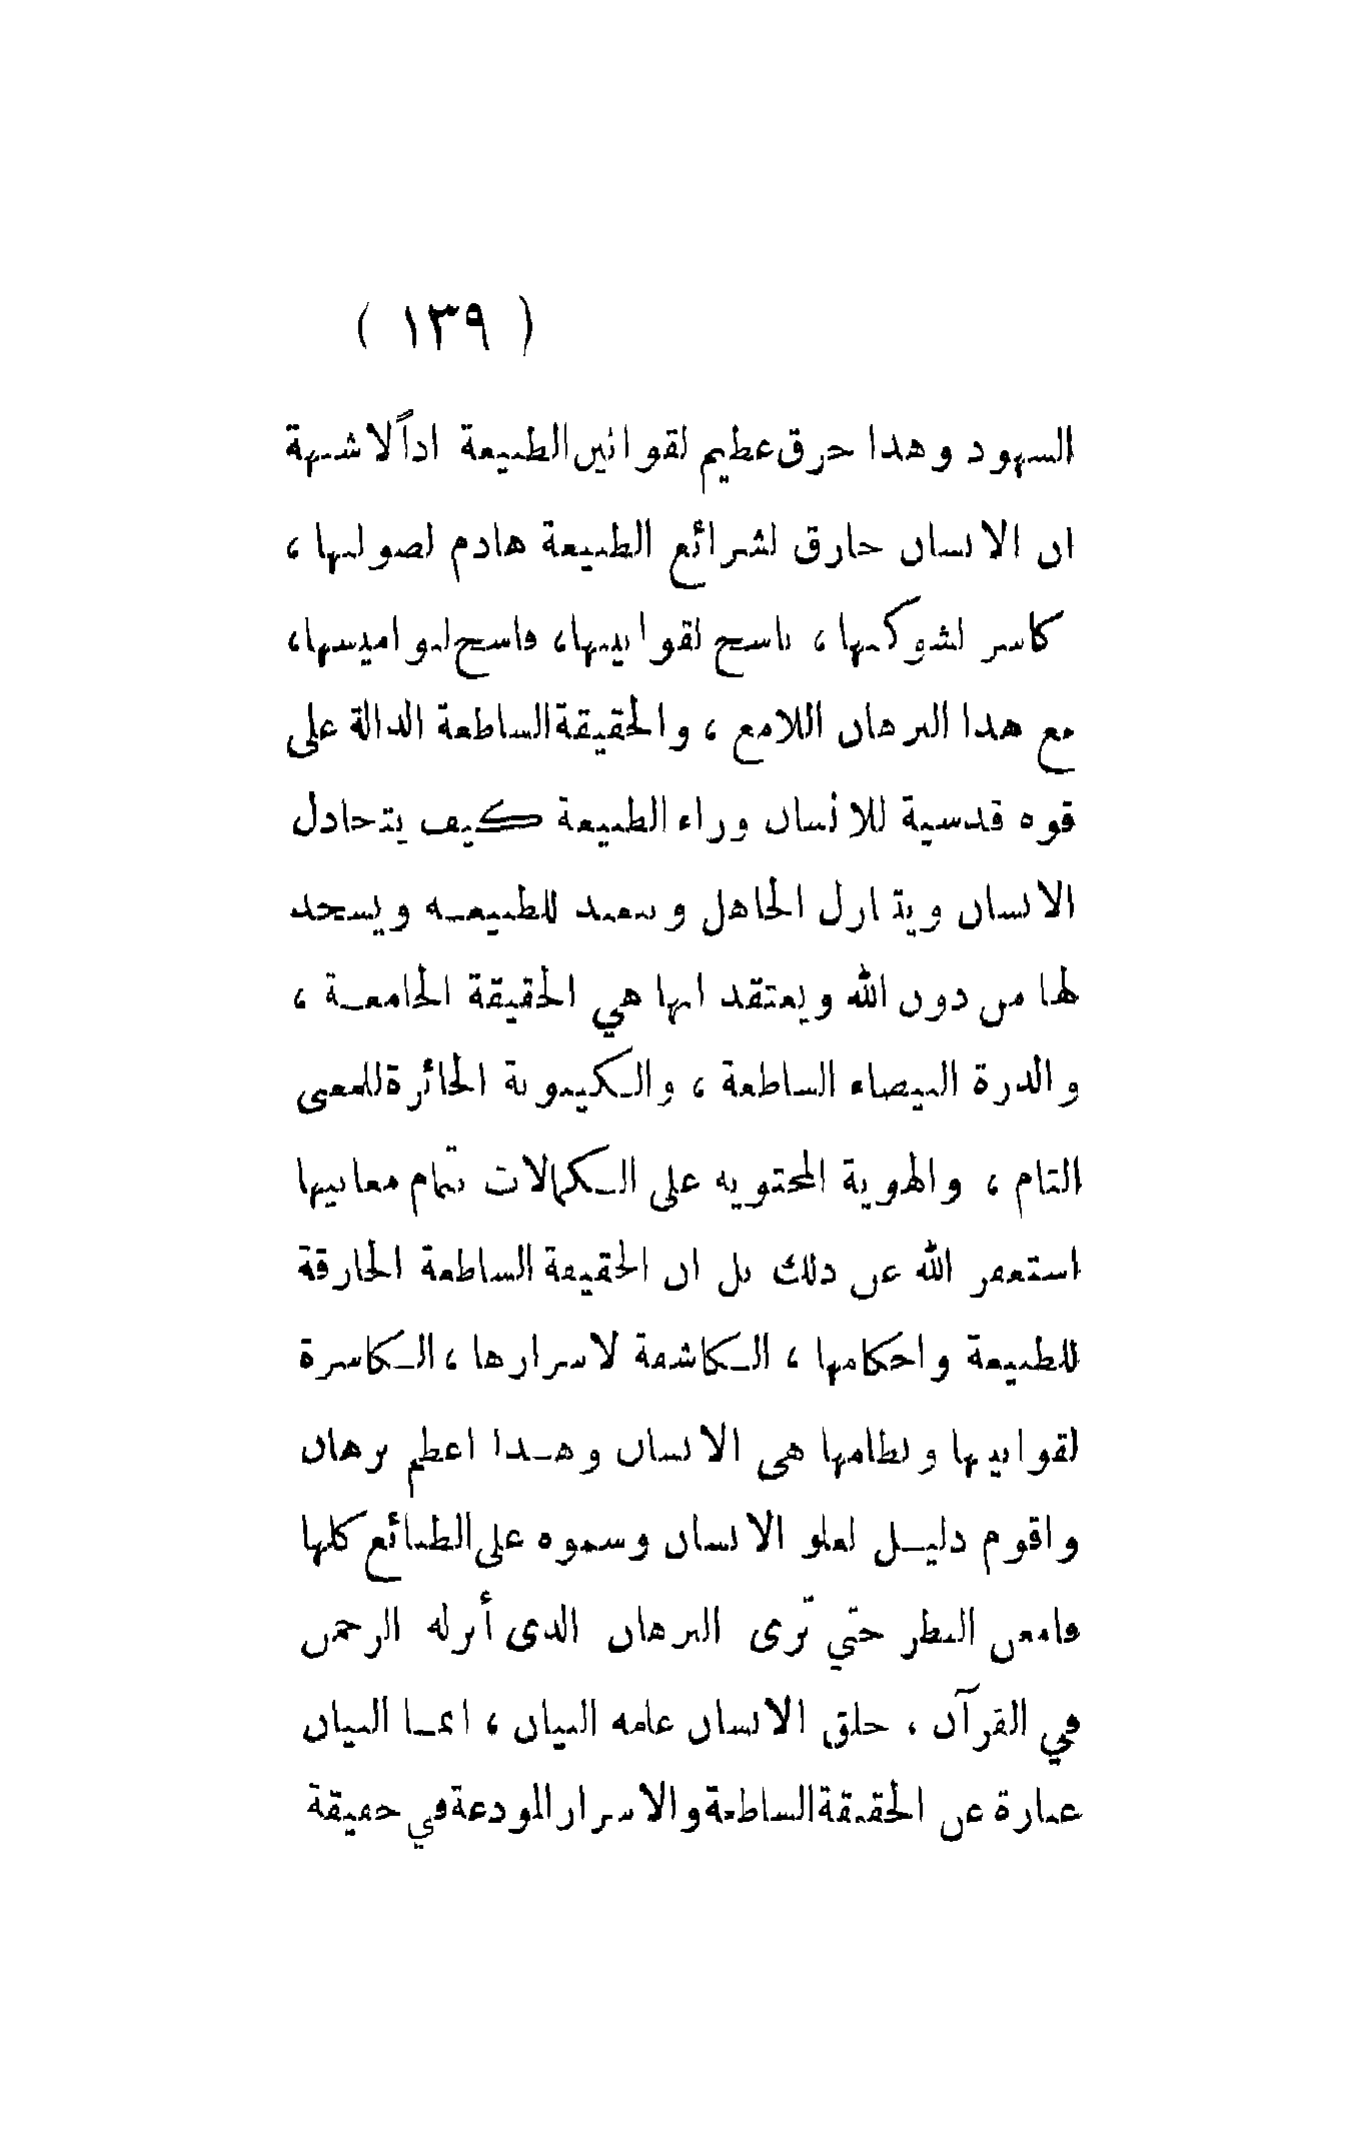 ( ١٣٩ )
الشهود وهذا خرق عظيم لقوانين الطبيعة اذاً لا شبهة
ان الانسان خارق لشرائع الطبيعة هادم لصولتها ،
كاسر لشوكتها ، ناسخ لقوانينها ، فاسخ لنواميسها ،
مع هذا البرهان اللامع ، والحقيقة الساطعة الدالة على
قوه قدسية للانسان وراء الطبيعة كيف يتجادل
الانسان ويتنازل الجاهل ويتعبد للطبيعه ويسجد
لها من دون الله ويعتقد انها هي الحقيقة الجامعة ،
والدرة البيضاء الساطعة ، والكينونة الحائزة للمعنى
التام ، والهوية المحتويه على الكمالات بتمام معانيها
استغفر الله عن ذلك بل ان الحقيقة الساطعة الخارقة
للطبيعة واحكامها ، الكاشفة لاسرارها ، الكاسرة
لقوانينها ونظامها هى الانسان وهذا اعظم برهان
واقوم دليل لعلو الانسان وسموه على الطبائع كلها
فامعن النظر حتي ترى البرهان الذى أنزله الرحمن
في القرآن ، خلق الانسان علمه البيان ، انما البيان
عبارة عن الحقيقة الساطعة والاسرار المودعة في حقيقة